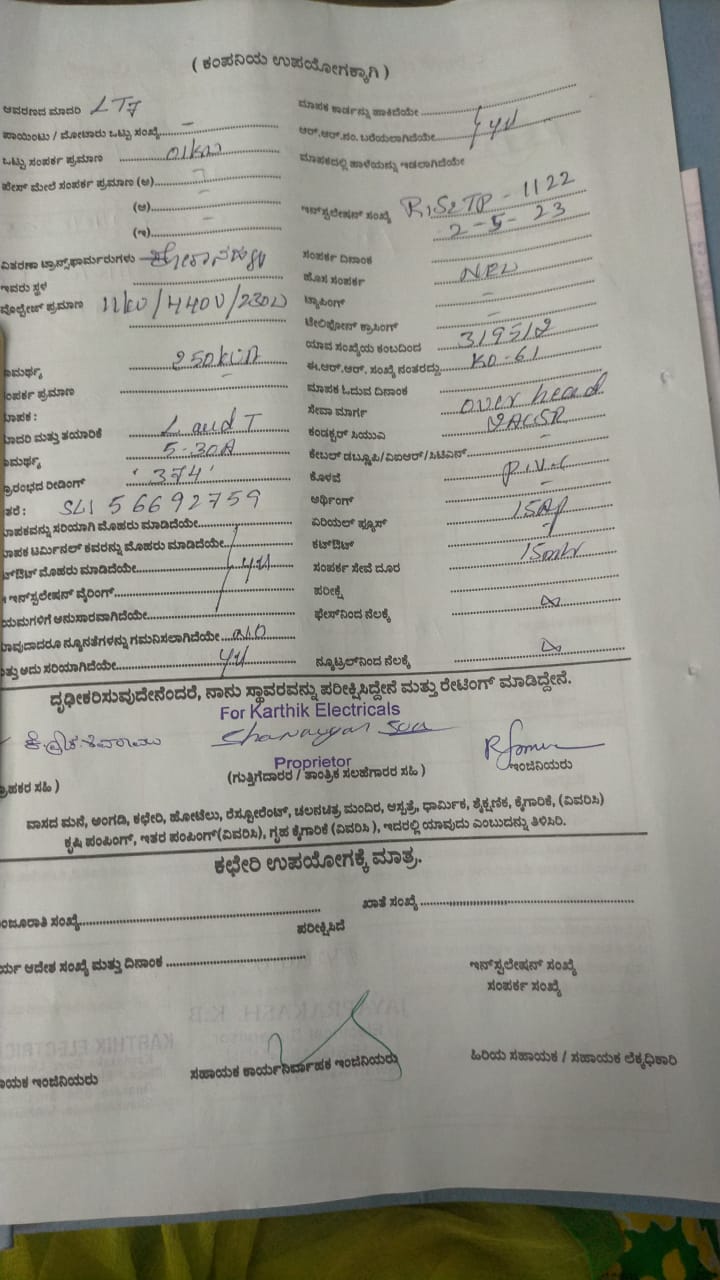 ( ಕಂಪನಿಯ ಉಪಯೋಗಕ್ಕಾಗಿ )
ಆವರಣದ ಮಾದರಿ LT7
ಪಾಯಿಂಟು / ಮೋಟಾರು ಒಟ್ಟು ಸಂಖ್ಯೆ
ಒಟ್ಟು ಸಂಪರ್ಕ ಪ್ರಮಾಣ 01KW
ಫೇಸ್ ಮೇಲೆ ಸಂಪರ್ಕ ಪ್ರಮಾಣ (ಅ)
(ಆ)
(ಇ)
ವಿತರಣಾ ಟ್ರಾನ್ಸ್‌ಫಾರ್ಮರುಗಳು
ಇವರು ಸ್ಥಳ
ವೋಲ್ಟೇಜ್ ಪ್ರಮಾಣ 11KV/440V/230V
ಾಮರ್ಥ್ಯ 250KVA
ಂಪರ್ಕ ಪ್ರಮಾಣ
ಾಪಕ :
ಾದರಿ ಮತ್ತು ತಯಾರಿಕೆ L and T
ಾಮರ್ಥ್ಯ 5-30A
್ರಾರಂಭದ ರೀಡಿಂಗ್ '374'
ತರೆ : SLI 56692759
ಾಪಕವನ್ನು ಸರಿಯಾಗಿ ಮೊಹರು ಮಾಡಿದೆಯೇ
ಾಪಕ ಟರ್ಮಿನಲ್ ಕವರನ್ನು ಮೊಹರು ಮಾಡಿದೆಯೇ
ಟ್‌ಔಟ್ ಮೊಹರು ಮಾಡಿದೆಯೇ
ಇನ್‌ಸ್ಪಲೇಷನ್ ವೈರಿಂಗ್
ಯಮಗಳಿಗೆ ಅನುಸಾರವಾಗಿದೆಯೇ
ಾವುದಾದರೂ ನ್ಯೂನತೆಗಳನ್ನು ಗಮನಿಸಲಾಗಿದೆಯೇ
ತ್ತು ಅದು ಸರಿಯಾಗಿದೆಯೇ
ಮಾಪಕ ಕಾರ್ಡನ್ನು ಹಾಕಿದೆಯೇ
ಆರ್.ಆರ್.ನಂ. ಬರೆಯಲಾಗಿದೆಯೇ
ಮಾಪಕದಲ್ಲಿ ಹಾಳೆಯನ್ನು ಇಡಲಾಗಿದೆಯೇ
ಇನ್‌ಸ್ಪಲೇಷನ್ ಸಂಖ್ಯೆ RISETP - 1122
2-5-23
ಸಂಪರ್ಕ ದಿನಾಂಕ
ಹೊಸ ಸಂಪರ್ಕ NEW
ಟ್ಯಾಪಿಂಗ್
ಟೆಲಿಫೋನ್ ಕ್ರಾಸಿಂಗ್
ಯಾವ ಸಂಖ್ಯೆಯ ಕಂಬದಿಂದ
ಈ.ಆರ್.ಆರ್. ಸಂಖ್ಯೆ ನಂತರದ್ದು KD-61
ಮಾಪಕ ಓದುವ ದಿನಾಂಕ
ಸೇವಾ ಮಾರ್ಗ over head
ಕಂಡಕ್ಟರ್ ಸಿಯುಎ
ಕೇಬಲ್ ಡಬ್ಲ್ಯೂಪಿ/ವಿಐಆರ್/ಸಿಟಿಎಸ್
ಕೊಳವೆ P.V.C
ಅರ್ಥಿಂಗ್
ಏರಿಯಲ್ ಫ್ಯೂಸ್
ಕಟ್‌ಔಟ್
ಸಂಪರ್ಕ ಸೇವೆ ದೂರ 15mtr
ಪರೀಕ್ಷೆ
ಫೇಸ್‌ನಿಂದ ನೆಲಕ್ಕೆ
ನ್ಯೂಟ್ರಲ್‌ನಿಂದ ನೆಲಕ್ಕೆ
ದೃಢೀಕರಿಸುವುದೇನೆಂದರೆ, ನಾನು ಸ್ಥಾವರವನ್ನು ಪರೀಕ್ಷಿಸಿದ್ದೇನೆ ಮತ್ತು ರೇಟಿಂಗ್ ಮಾಡಿದ್ದೇನೆ.
For Karthik Electricals
Proprietor
್ರಾಹಕರ ಸಹಿ )
(ಗುತ್ತಿಗೆದಾರರ / ತಾಂತ್ರಿಕ ಸಲಹೆಗಾರರ ಸಹಿ )
ಇಂಜಿನಿಯರು
ವಾಸದ ಮನೆ, ಅಂಗಡಿ, ಕಛೇರಿ, ಹೋಟೆಲು, ರೆಸ್ಟೋರೆಂಟ್, ಚಲನಚಿತ್ರ ಮಂದಿರ, ಆಸ್ಪತ್ರೆ, ಧಾರ್ಮಿಕ, ಶೈಕ್ಷಣಿಕ, ಕೈಗಾರಿಕೆ, (ವಿವರಿಸಿ)
ಕೃಷಿ ಪಂಪಿಂಗ್, ಇತರ ಪಂಪಿಂಗ್(ವಿವರಿಸಿ), ಗೃಹ ಕೈಗಾರಿಕೆ (ವಿವರಿಸಿ ), ಇದರಲ್ಲಿ ಯಾವುದು ಎಂಬುದನ್ನು ತಿಳಿಸಿರಿ.
ಕಛೇರಿ ಉಪಯೋಗಕ್ಕೆ ಮಾತ್ರ.
ಂಜೂರಾತಿ ಸಂಖ್ಯೆ
ಖಾತೆ ಸಂಖ್ಯೆ
ಪರೀಕ್ಷಿಸಿದೆ
ರ್ಯ ಆದೇಶ ಸಂಖ್ಯೆ ಮತ್ತು ದಿನಾಂಕ
ಇನ್‌ಸ್ಪಲೇಷನ್ ಸಂಖ್ಯೆ
ಸಂಪರ್ಕ ಸಂಖ್ಯೆ
ಾಯಕ ಇಂಜಿನಿಯರು
ಸಹಾಯಕ ಕಾರ್ಯನಿರ್ವಾಹಕ ಇಂಜಿನಿಯರು
ಹಿರಿಯ ಸಹಾಯಕ / ಸಹಾಯಕ ಲೆಕ್ಕಧಿಕಾರಿ